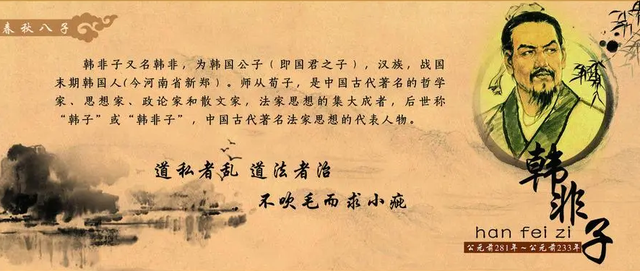 春秋八子
韩非子又名韩非，为韩国公子（即国君之子），汉族，战国
末期韩国人(今河南省新郑）。师从荀子，是中国古代著名的哲学
家、思想家、政论家和散文家，法家思想的集大成者，后世称
“韩子”或“韩非子”，中国古代著名法家思想的代表人物。
道私者乱 道法者治
不吹毛而求小疵
韩非子
han fei zi
公元前281年～公元前233年